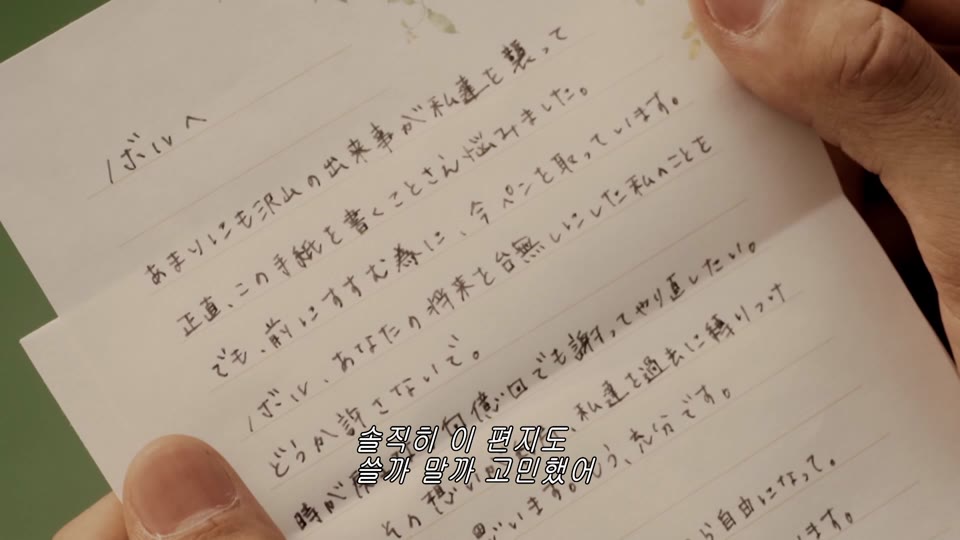 ノボルへ
あまりにも沢山の出来事が私達を襲って
正直、この手紙を書くことさえ悩みました。
でも、前にすすむ為に、今ペンを取っています。
ノボル、あなたの将来を台無しにした私のことを
どうか許さないで。
時が 何億回でも謝ってやり直したい。
その想い 、私達を過去に縛りつけ
思います。 う、充分です。
ら自由になって。
ます。
솔직히 이 편지도
쓸까 말까 고민했어